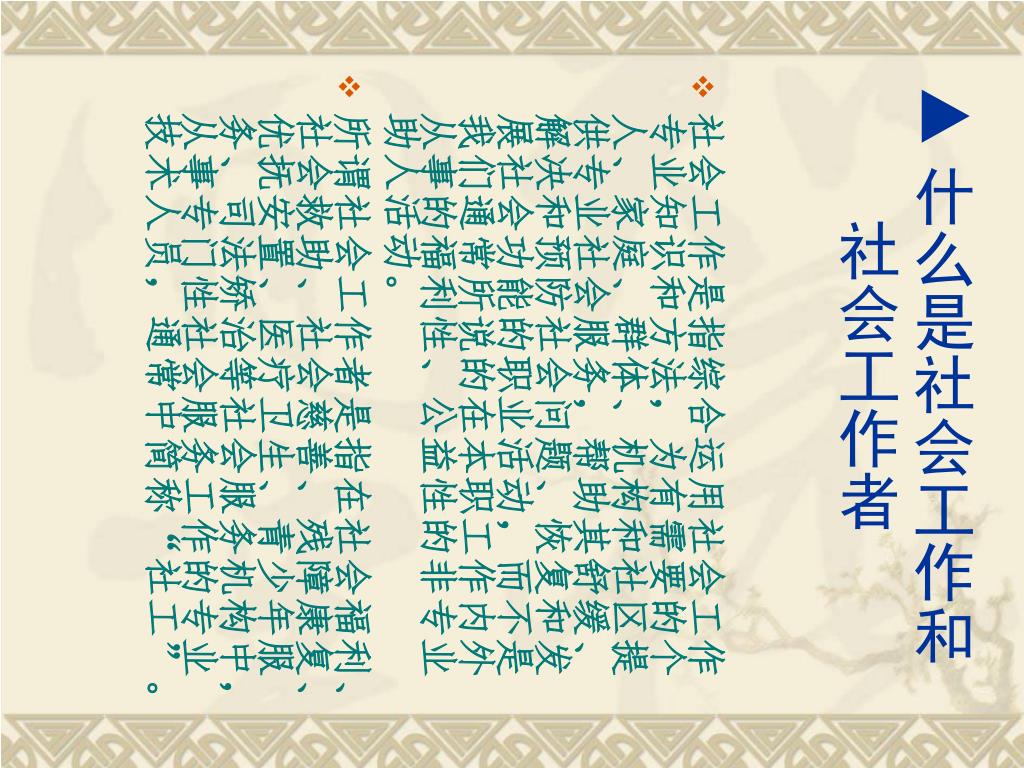 ▶ 什么是社会工作和
社会工作者
❖ 社会工作是指综合运用社会工作
专业知识和方法，为有需要的个
人、家庭、群体、机构和社区提
供专业社会服务，帮助其舒缓、
解决和预防社会问题，恢复和发
展社会功能的职业活动，而不是
我们通常所说的在本职工作内外
从事的福利性、公益性的非专业
助人活动。
❖ 所谓社会工作者是指在社会福利、
社会救助、社会慈善、残障康复、
优抚安置、医疗卫生、青少年服
务、司法矫治等社会服务机构中，
从事专门性社会服务工作的专业
技术人员，通常中简称“社工”。